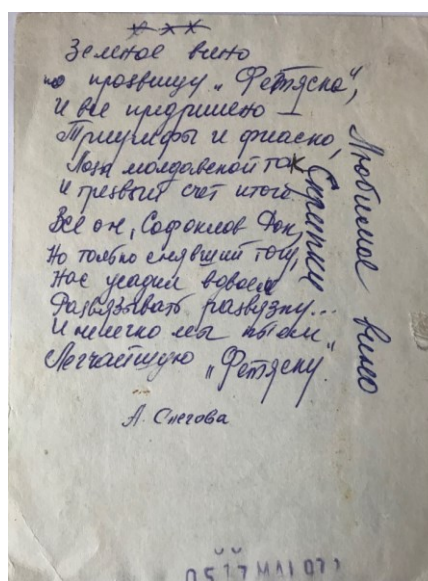 * * *
Зеленое вино
по прозвищу „Фетяска",
И все предрешено —
Триумфы и фиаско,
Лозы молдавской ток
И трезвый счет итога.
Все он, Софоклов Бог,
Но только снявший тогу,
Нас усадил вдвоем
Развязывать развязку...
И нелегко мы пьем
Легчайшую „Фетяску".
А. Снегова
Любимое вино
Скрипки
17 MAI